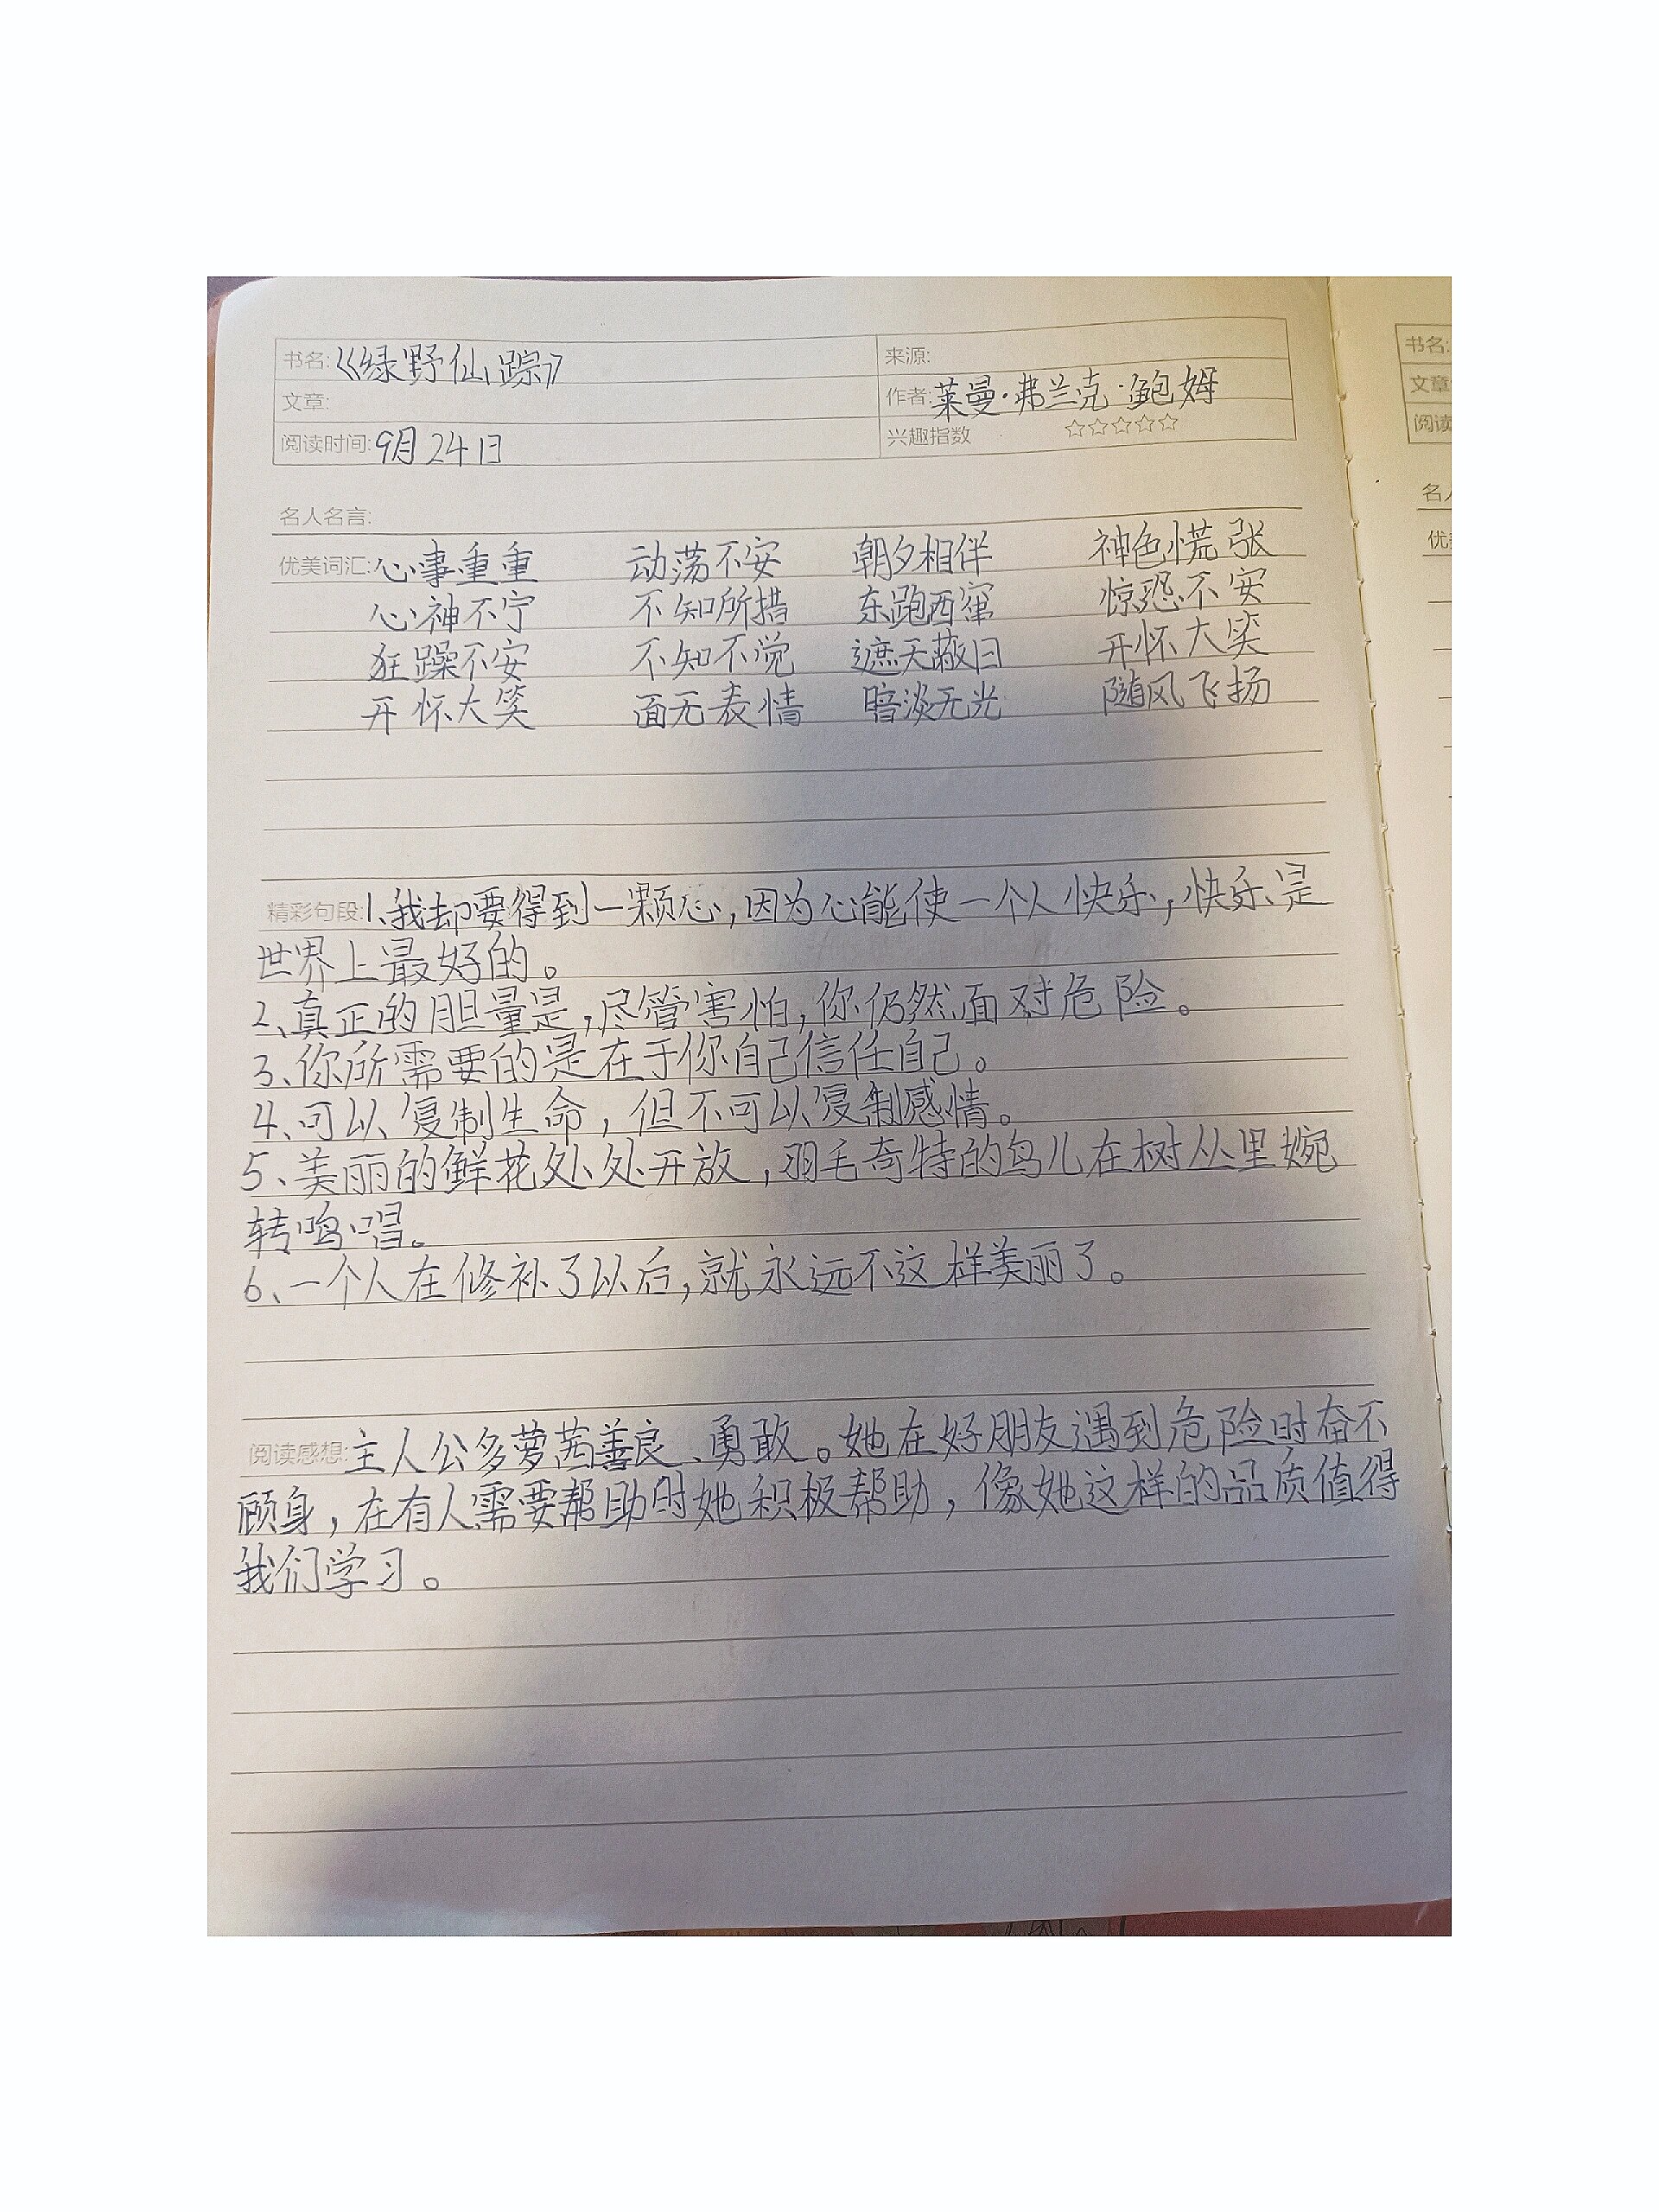 书名:《绿野仙踪》 来源:
文章: 作者:莱曼·弗兰克·鲍姆
阅读时间:9月24日 兴趣指数 ☆☆☆☆☆
名人名言:
优美词汇:心事重重 动荡不安 朝夕相伴 神色慌张
心神不宁 不知所措 东跑西窜 惊恐不安
狂躁不安 不知不觉 遮天蔽日 开怀大笑
开怀大笑 面无表情 暗淡无光 随风飞扬
精彩句段:1、我却要得到一颗心,因为心能使一个人快乐,快乐是
世界上最好的。
2、真正的胆量是,尽管害怕,你仍然面对危险。
3、你所需要的是在于你自己信任自己。
4、可以复制生命,但不可以复制感情。
5、美丽的鲜花处处开放,羽毛奇特的鸟儿在树丛里婉
转鸣唱。
6、一个人在修补了以后,就永远不这样美丽了。
阅读感想:主人公多萝茜善良、勇敢。她在好朋友遇到危险时奋不
顾身,在有人需要帮助时她积极帮助,像她这样的品质值得
我们学习。
书名:
文章
阅读
名人
优